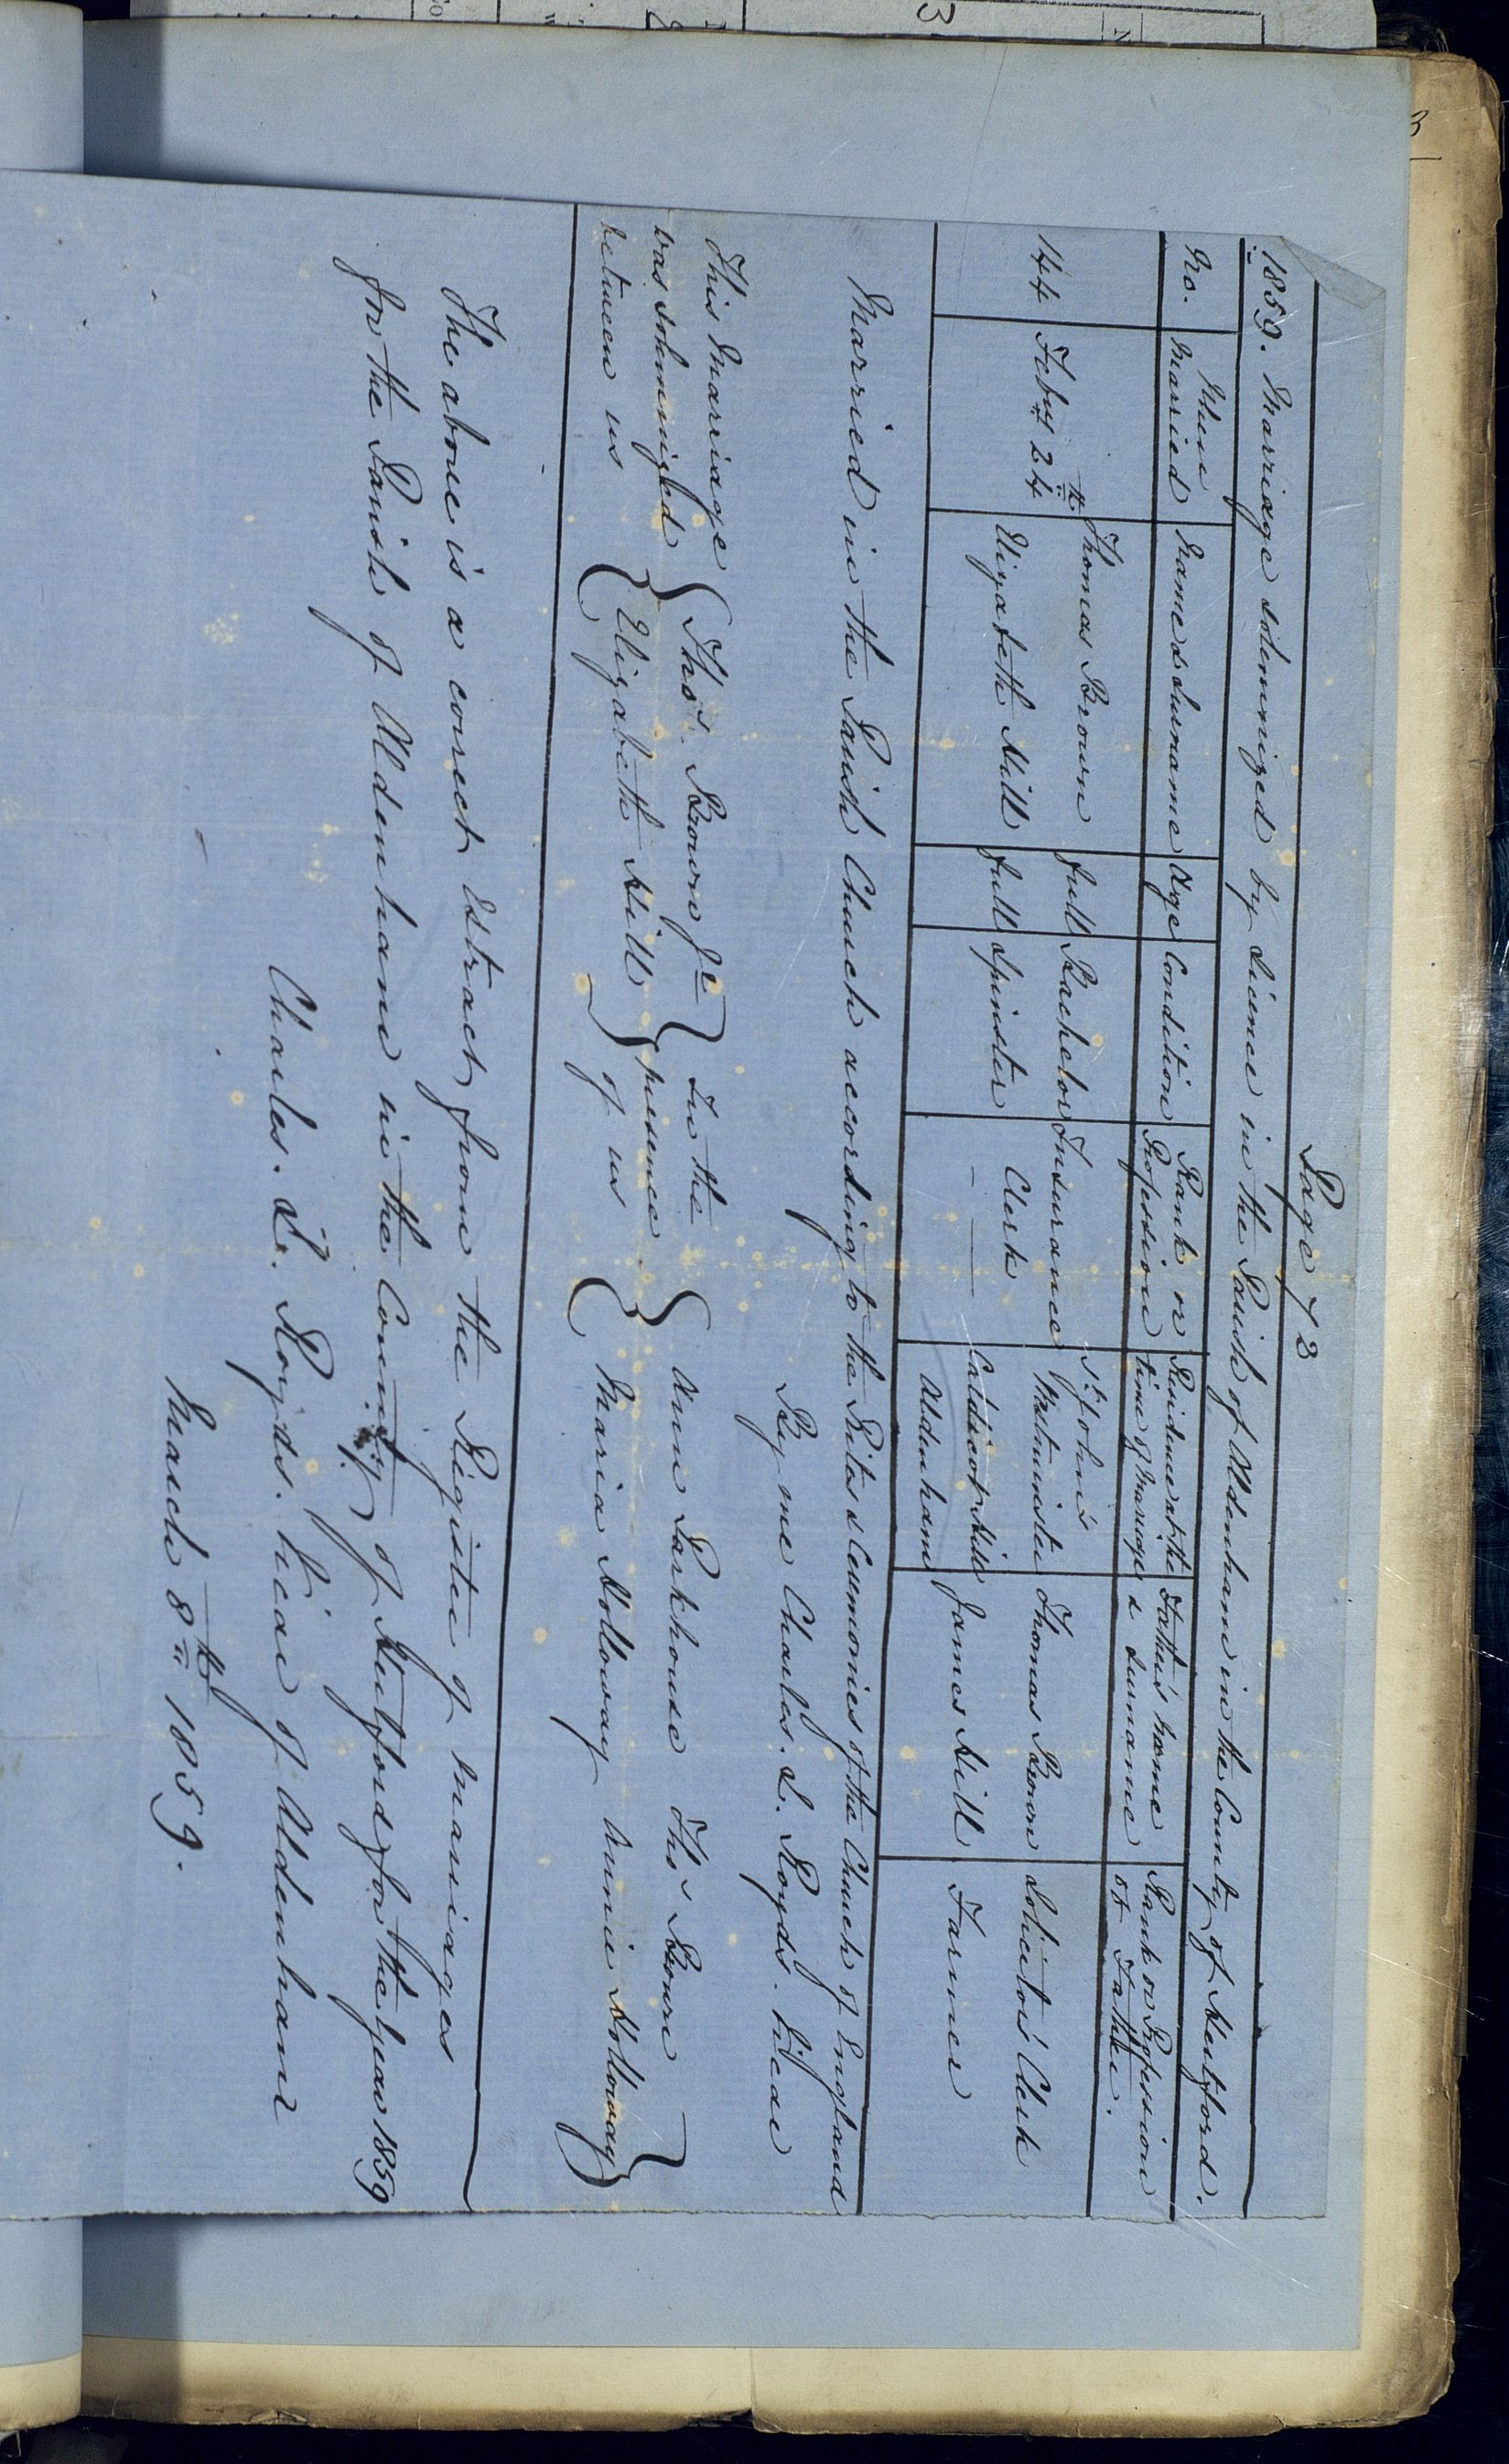 Page 72
1859. Marriage solemnized by Licence in the Parish of Aldenham in the County of Hertford.
No. When Married Name & Surname Age Condition Rank or Profession Residence at the time of Marriage Father's Name & Surname Rank or Profession of Father.
144 Feby 24th Thomas Brown full Bachelor Insurance Clerk St John's Westminster Thomas Brown Solicitors' Clerk
Elizabeth Hill full Spinster - — Caldecot Hill Aldenham James Hill Farmer
Married in the Parish Church according to the Rites & Ceremonies of the Church of England
By me Charles. L. Royds. Vicar
This Marriage was solemnized between us { Thos. Brown Jr Elizabeth Hill } In the presence of us { Ann Parkhouse Thos Bowre Maria Holloway Annie Holloway }
The above is a correct Extract from the Register of Marriages
for the Parish of Aldenham in the County of Hertford for the Year 1859
Charles. L. Royds. Vicar of Aldenham
March 8th 1859.
3
3